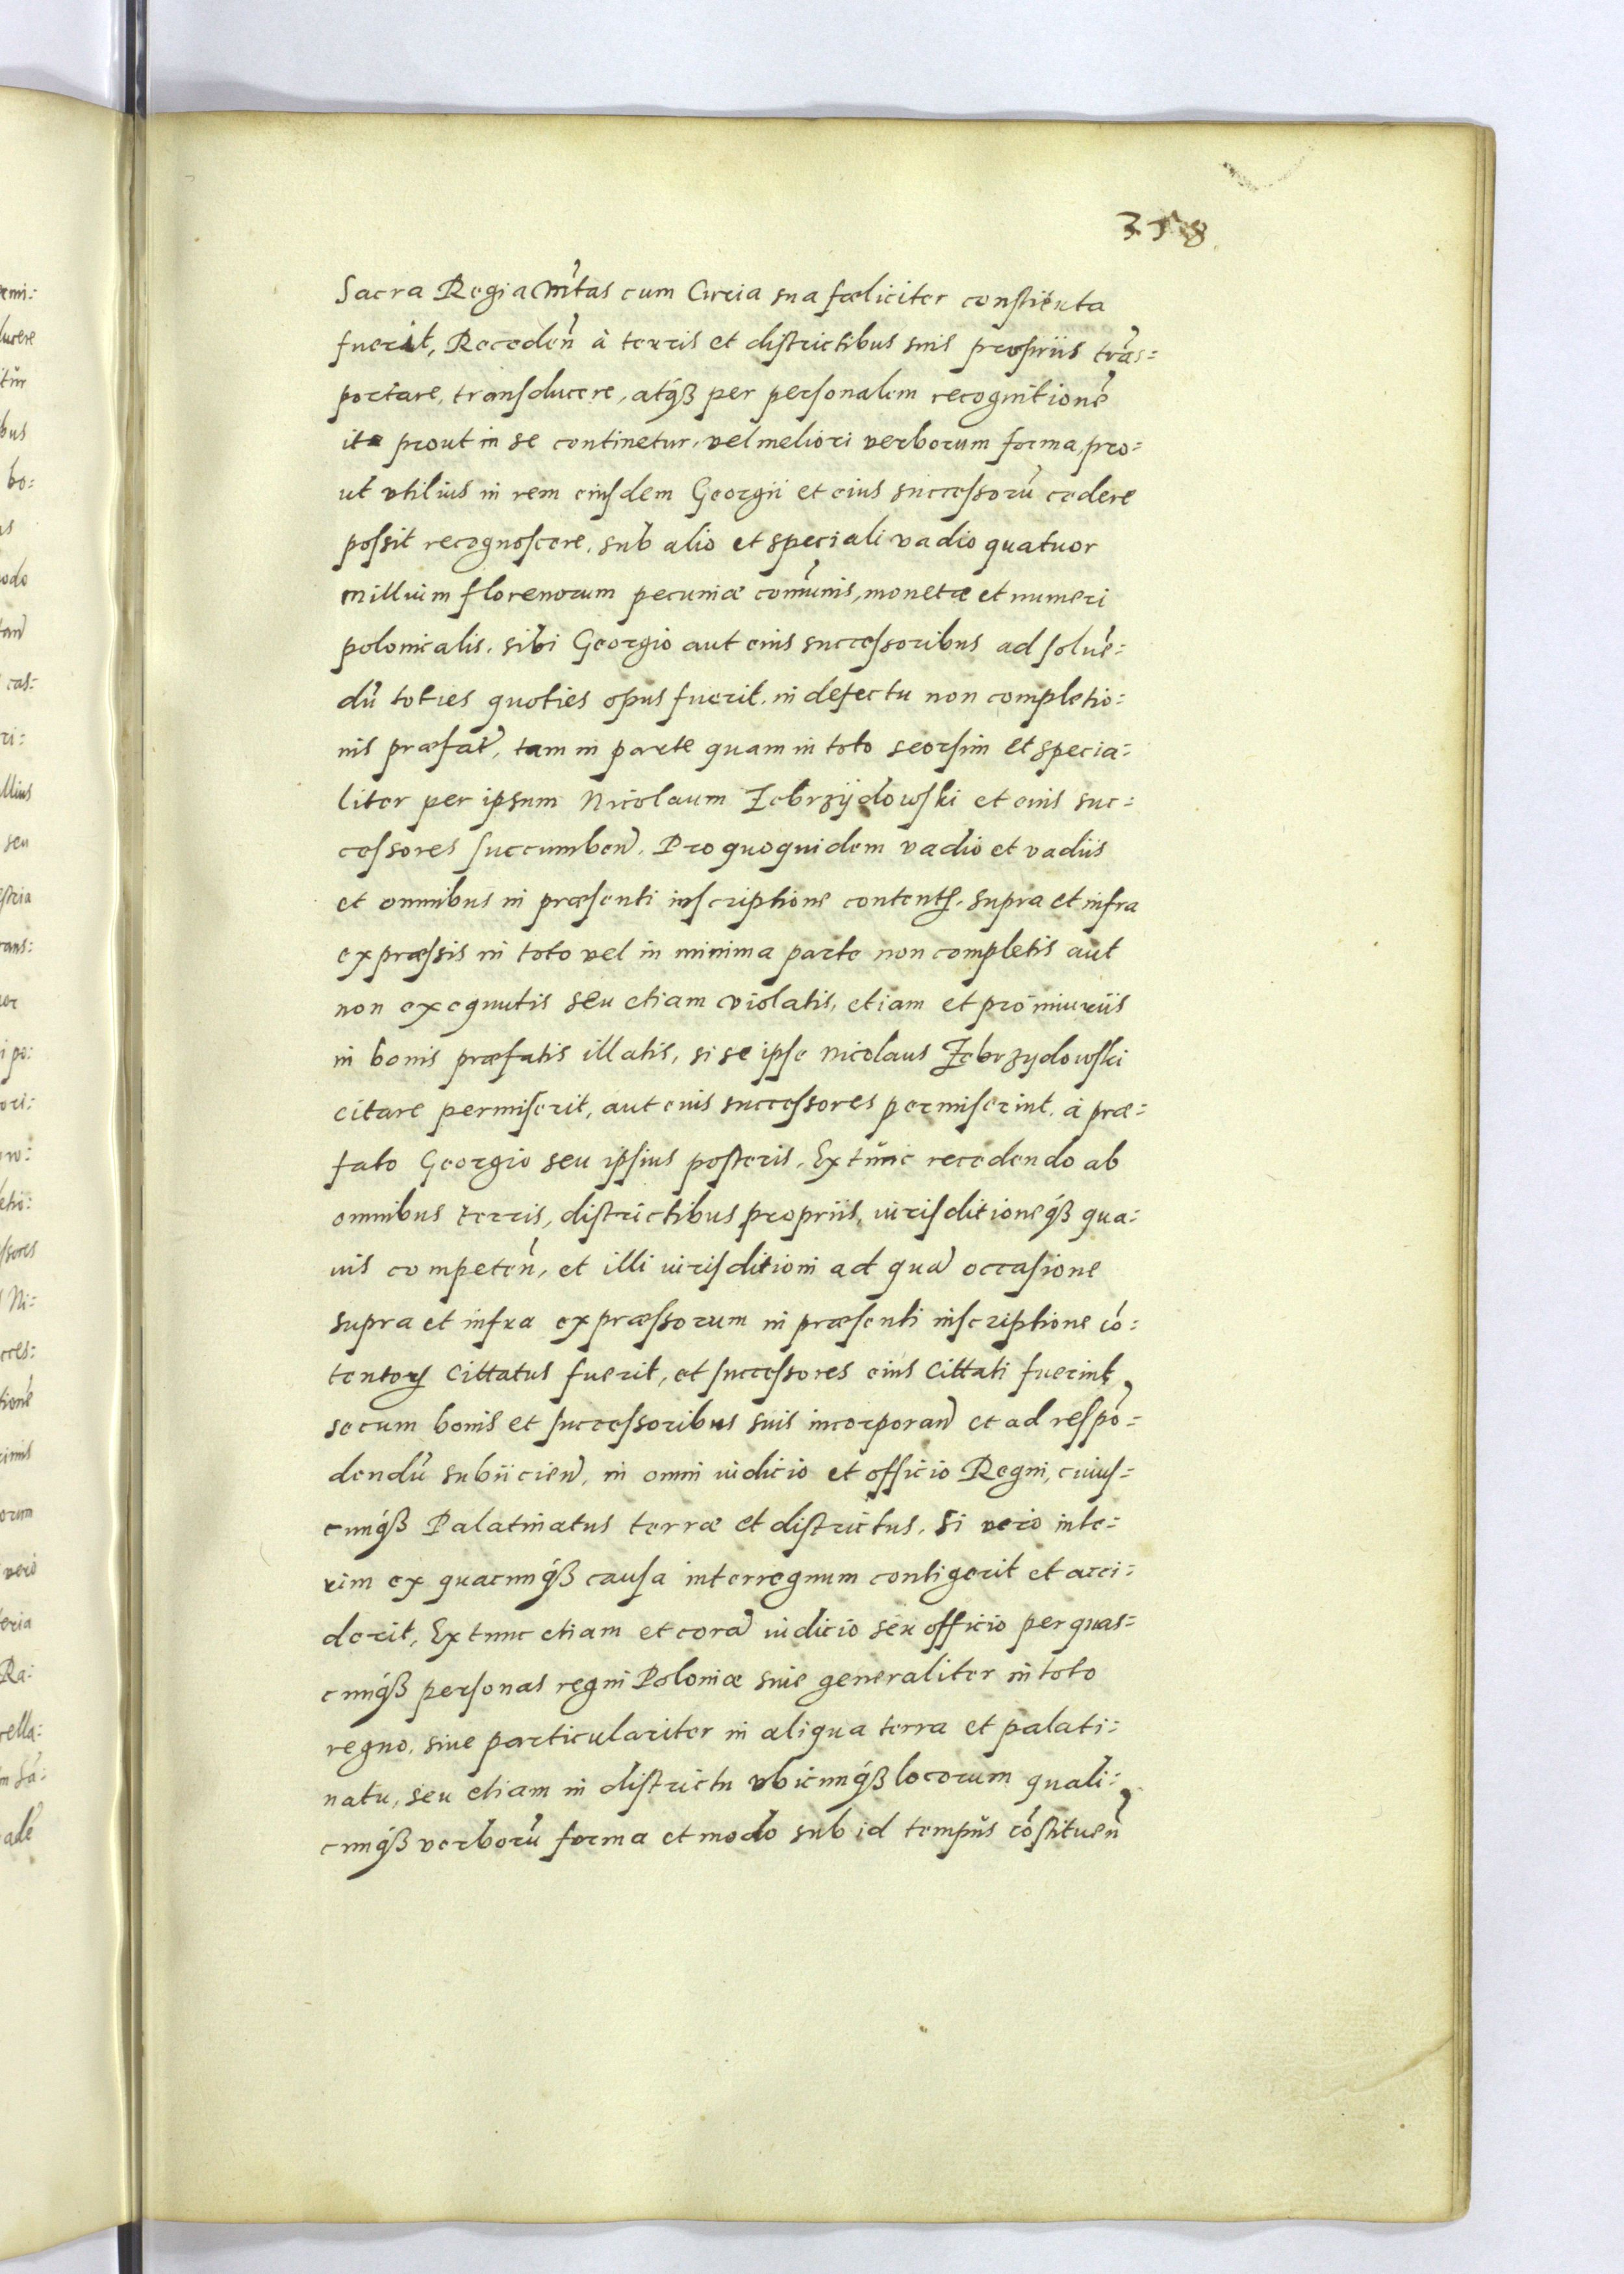 358
Sacra Regia Mtas cum Curia sua fœliciter constituta
fuerit, Receden̄ à terris et districtibus suis propriis trās=
portare, transducere, atq́ꝫ per personalem recognitionē
ita prout in se continetur, vel meliori verborum forma, pro=
ut vtilius in rem eiusdem Georgii et eius successorū cedere
possit recognoscere, sub alio et speciali vadio quatuor
millium florenorum pecuniæ com̄unis, monetæ et numeri
polonicalis, sibi Georgio aut eius successoribus ad soluē=
dū toties quoties opus fuerit, in defectu non completio=
nis præfat̄, tam in parte quam in toto seorsim et specia=
liter per ipsum Nicolaum Zebrzÿdowski et eius suc=
cessores succumben̄. Pro quoquidem vadio et vadiis
et omnibus in præsenti inscriptione contentꝭ, supra et infra
expræssis in toto vel in minima parte non completis aut
non exequutis seu etiam violatis, etiam et pro iniuriis
in bonis præfatis illatis, si se ipse Nicolaus Zebrzydowski
citare permiserit, aut eius successores permiserint, à præ=
fato Georgio seu ipsius posteris, Extunc recedendo ab
omnibus terris, districtibus propriis, iurisditioneq́ꝫ qua=
uis competen̄, et illi iurisditioni ad quā occasione
supra et infra expræssorum in præsenti inscriptione cō=
tentoꝝ cittatus fuerit, et successores eius cittati fuerint,
secum bonis et successoribus suis incorporan̄ et ad respō=
dendū subiicien̄, in omni iudicio et officio Regni, cuius=
cunq́ꝫ Palatinatus terræ et districtus. Si vero inte=
rim ex quacunq́ꝫ causa interregnum contigerit et acci=
derit, Extunc etiam et corā iudicio seu officio per quas=
cunq́ꝫ personas regni Poloniæ siue generaliter in toto
regno, siue particulariter in aliqua terra et palati=
natu, seu etiam in districtu vbicunq́ꝫ locorum quali=
cunq́ꝫ verborū forma et modo sub id tempus cōstituen̄